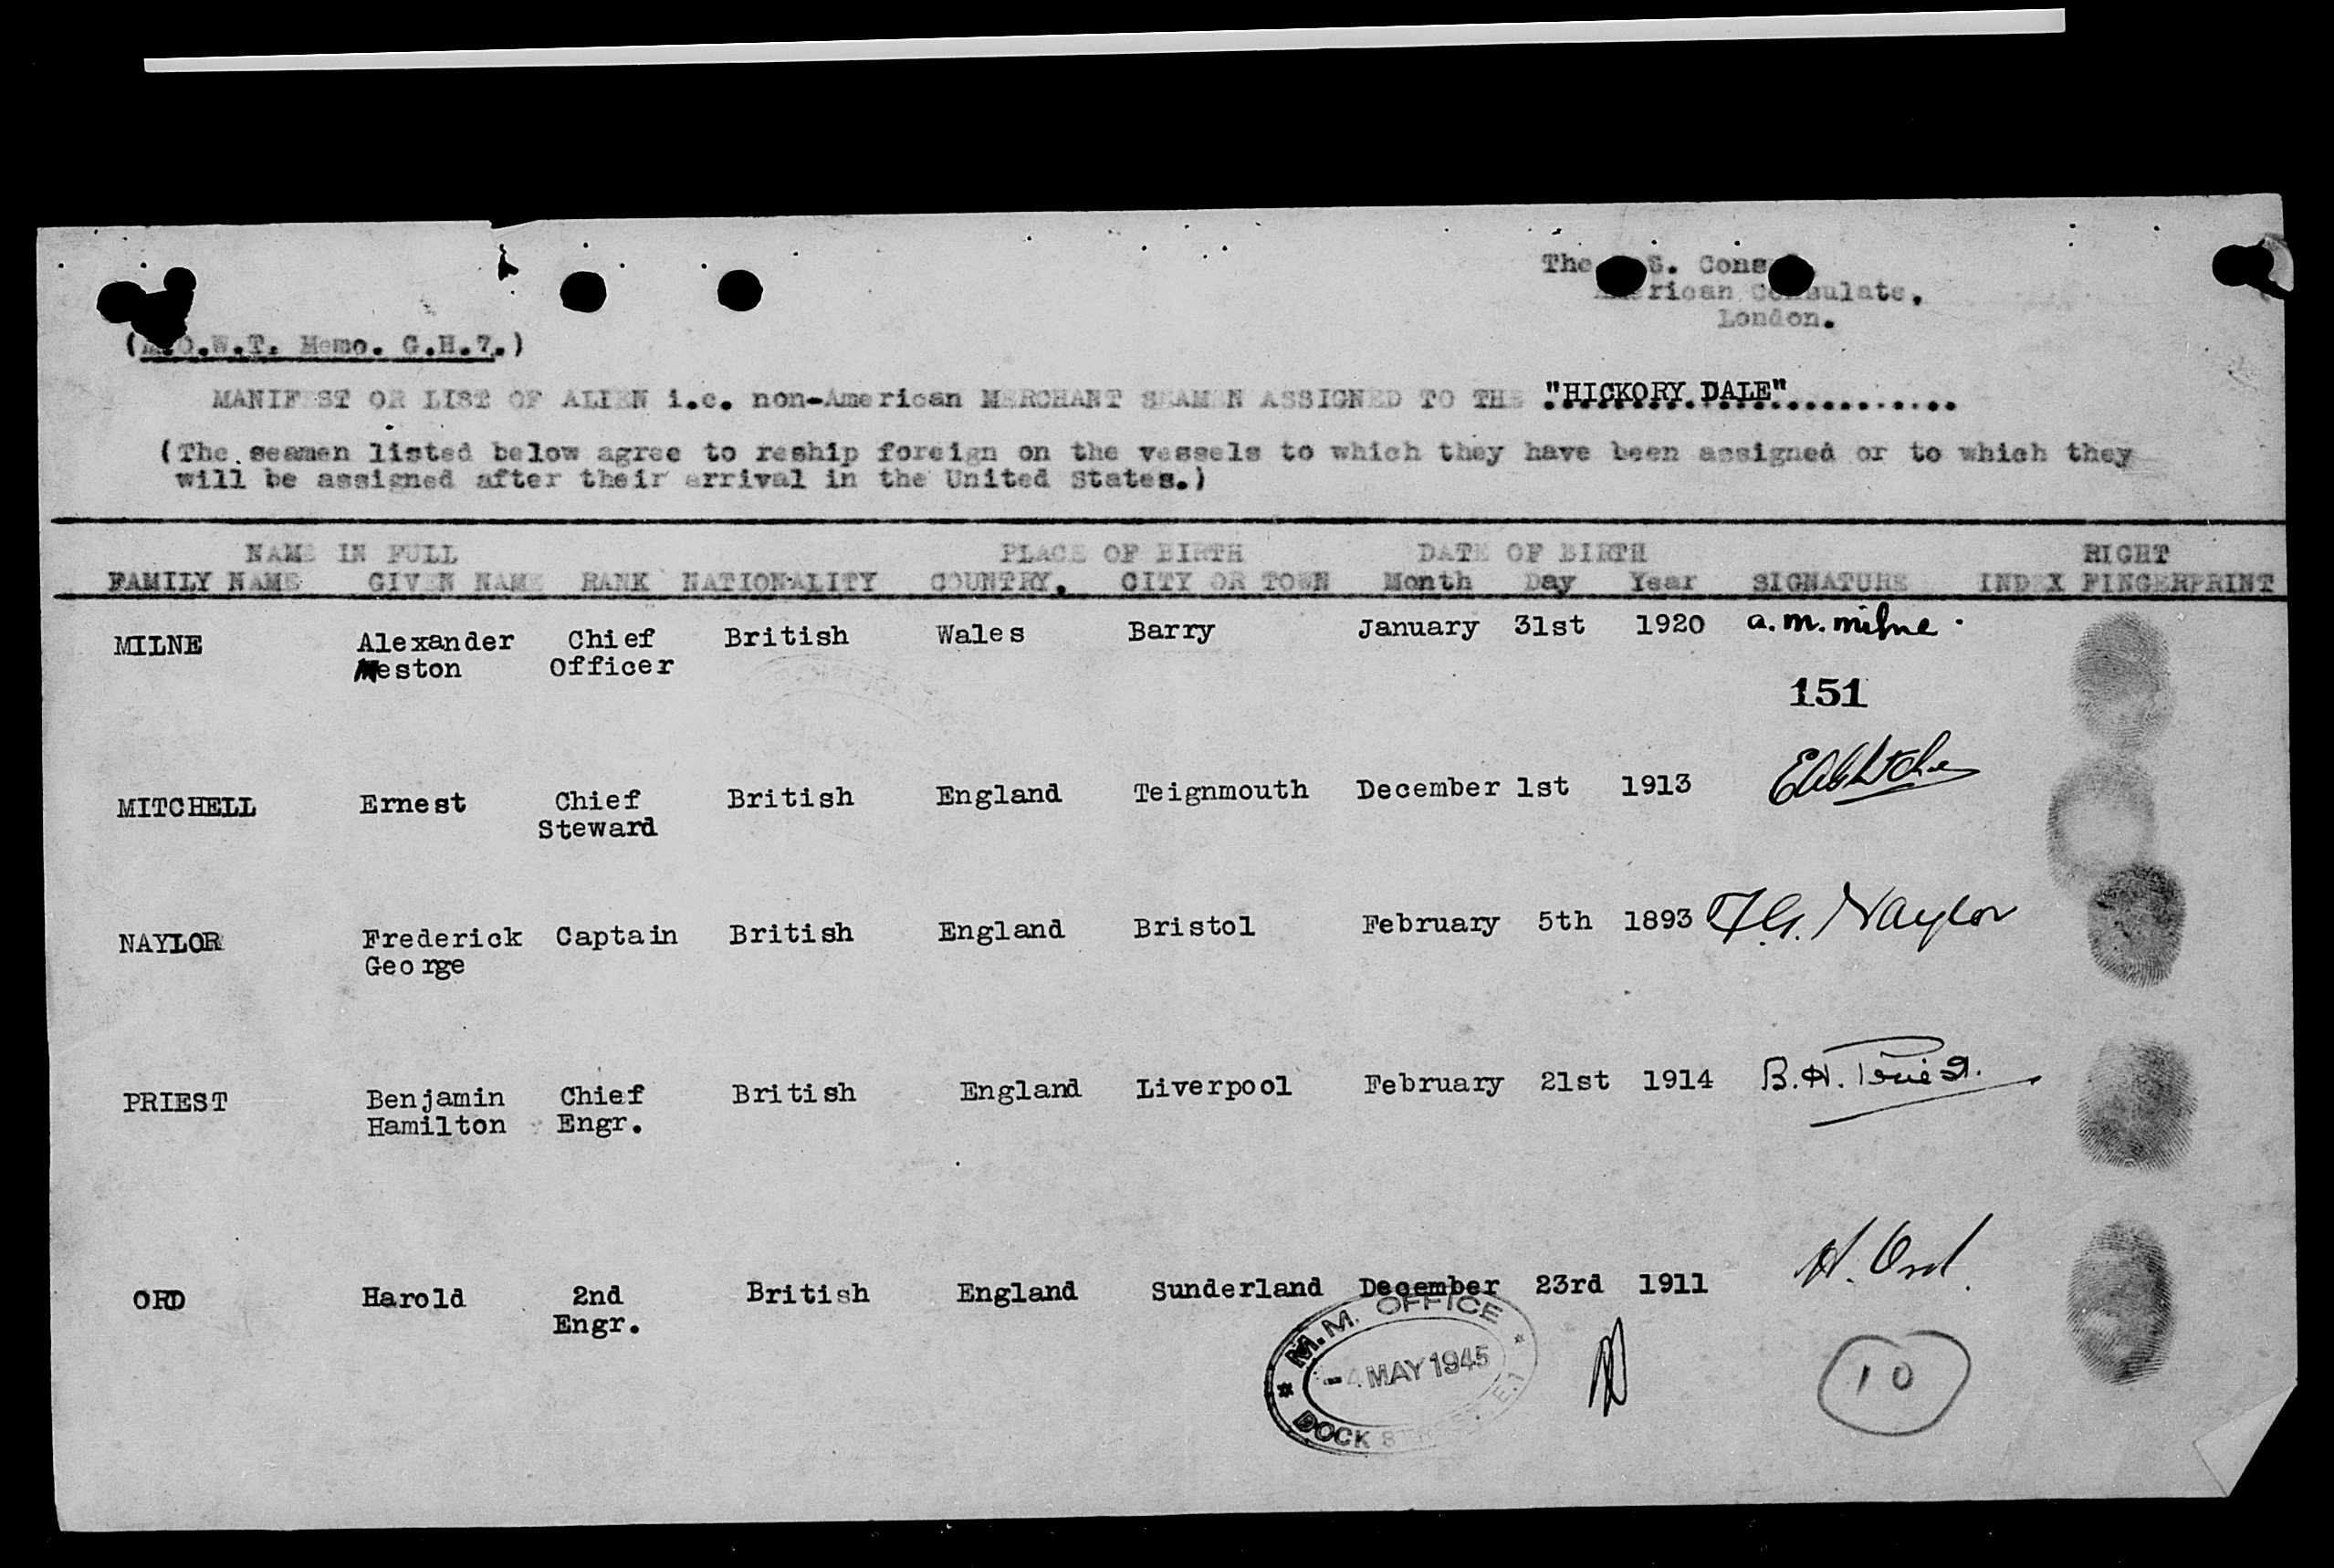 The U.S. Consul
American Consulate,
London.
(M.O.W.T. Memo. G.H.7.)
MANIFEST OR LIST OF ALIEN i.e. non-American MERCHANT SEAMEN ASSIGNED TO THE "HICKORY DALE"
(The seamen listed below agree to reship foreign on the vessels to which they have been assigned or to which they
will be assigned after their arrival in the United States.)
NAME IN FULL PLACE OF BIRTH DATE OF BIRTH RIGHT
FAMILY NAME GIVEN NAME RANK NATIONALITY COUNTRY. CITY OR TOWN Month Day Year SIGNATURE INDEX FINGERPRINT
MILNE Alexander Chief British Wales Barry January 31st 1920 a.m. milne.
Meston Officer
151
MITCHELL Ernest Chief British England Teignmouth December 1st 1913
Steward
NAYLOR Frederick Captain British England Bristol February 5th 1893 F.G. Naylor
George
PRIEST Benjamin Chief British England Liverpool February 21st 1914 B.H. Priest.
Hamilton Engr.
ORD Harold 2nd British England Sunderland December 23rd 1911 H. Ord.
Engr.
M.M. OFFICE
-4 MAY 1945
DOCK STREET E.1
10